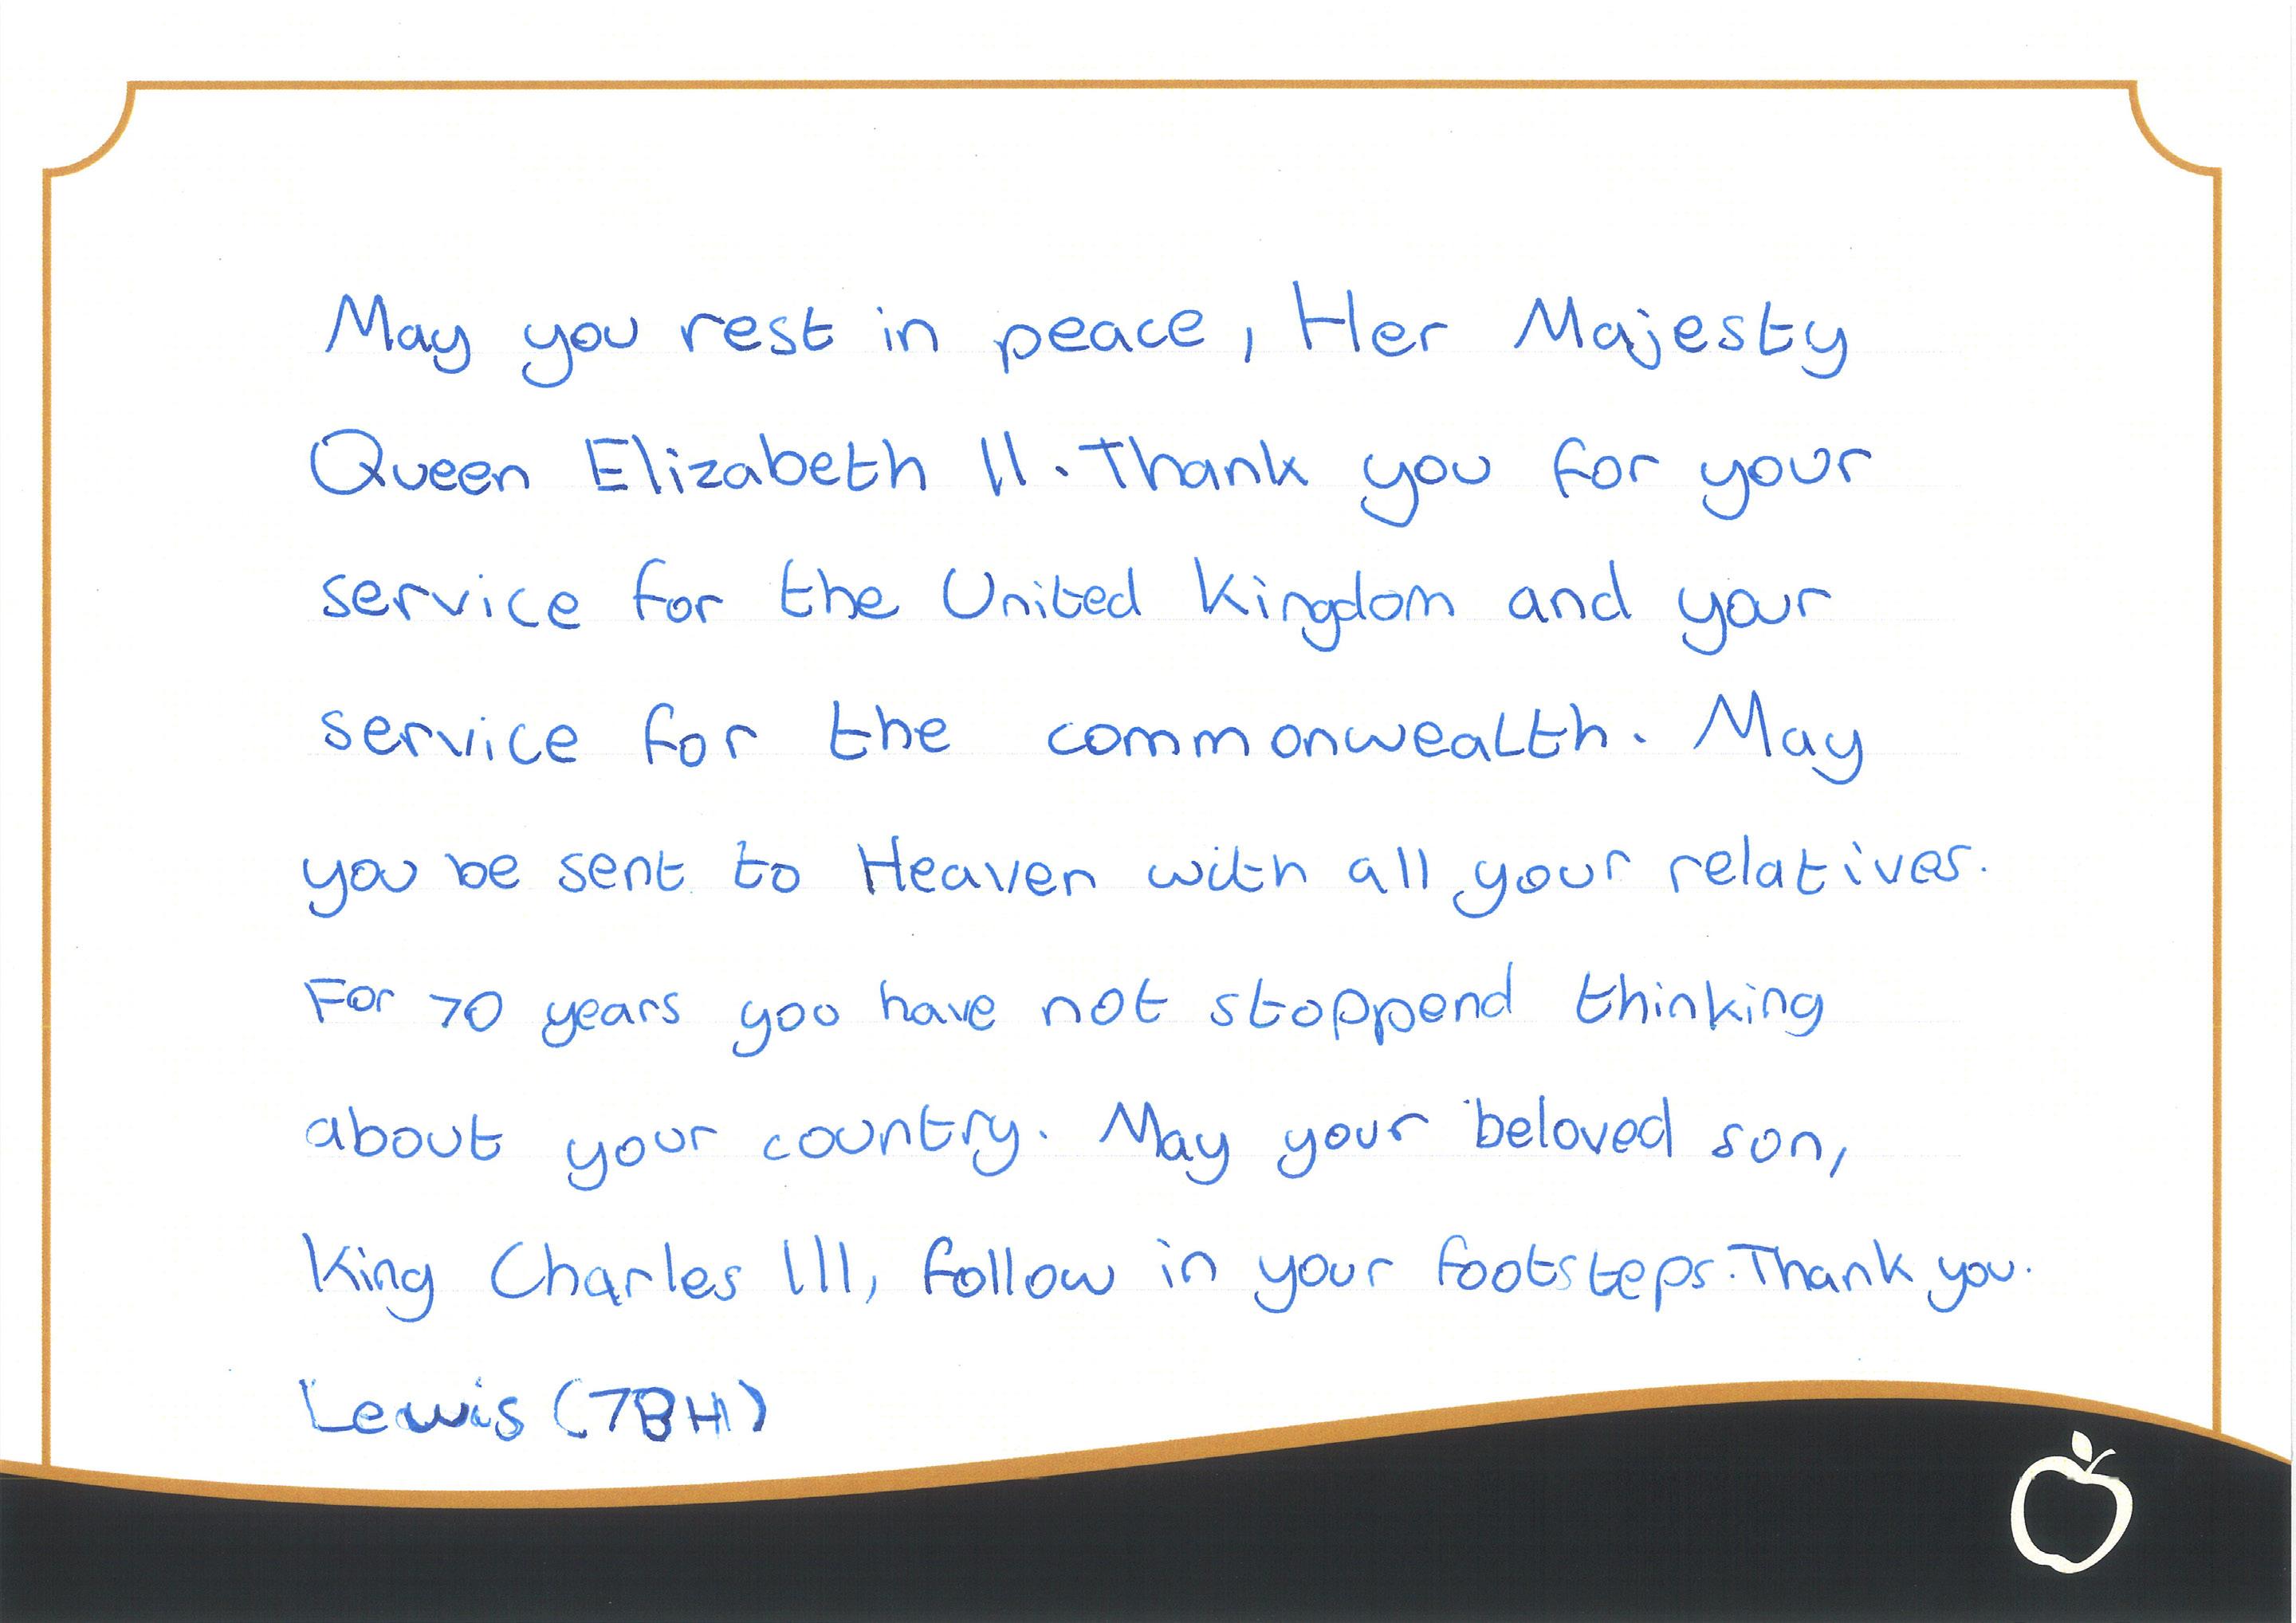 May you rest in peace, Her Majesty
Queen Elizabeth II. Thank you for your
service for the United Kingdom and your
service for the commonwealth. May
you be sent to Heaven with all your relatives.
For 70 years you have not stoppend thinking
about your country. May your beloved son,
King Charles III, follow in your footsteps. Thank you.
Lewis (7BH)